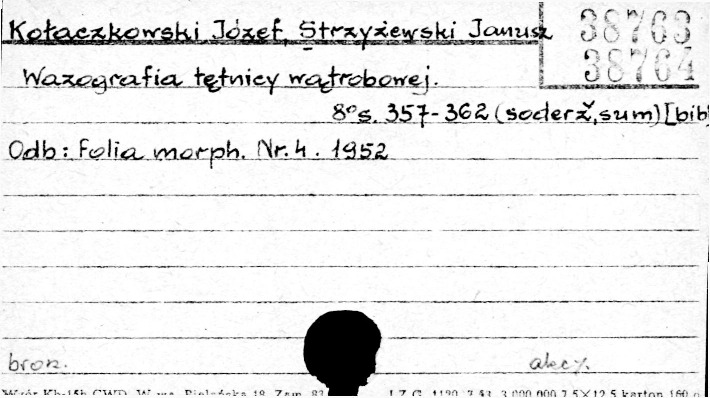 Kołaczkowski Józef, Strzyżewski Janusz
38763
38764
Wazografia tętnicy wątrobowej.
8° s. 357-362 (soderž, sum) [bibl
Odb: Folia morph. Nr. 4. 1952
brosz.
akc.
Wzór Kb-15b CWD, W-wa, Bielańska 18. Zam. 83
LZG. 1130. 7.53. 3.000.000 7.5×12.5 karton 160 g